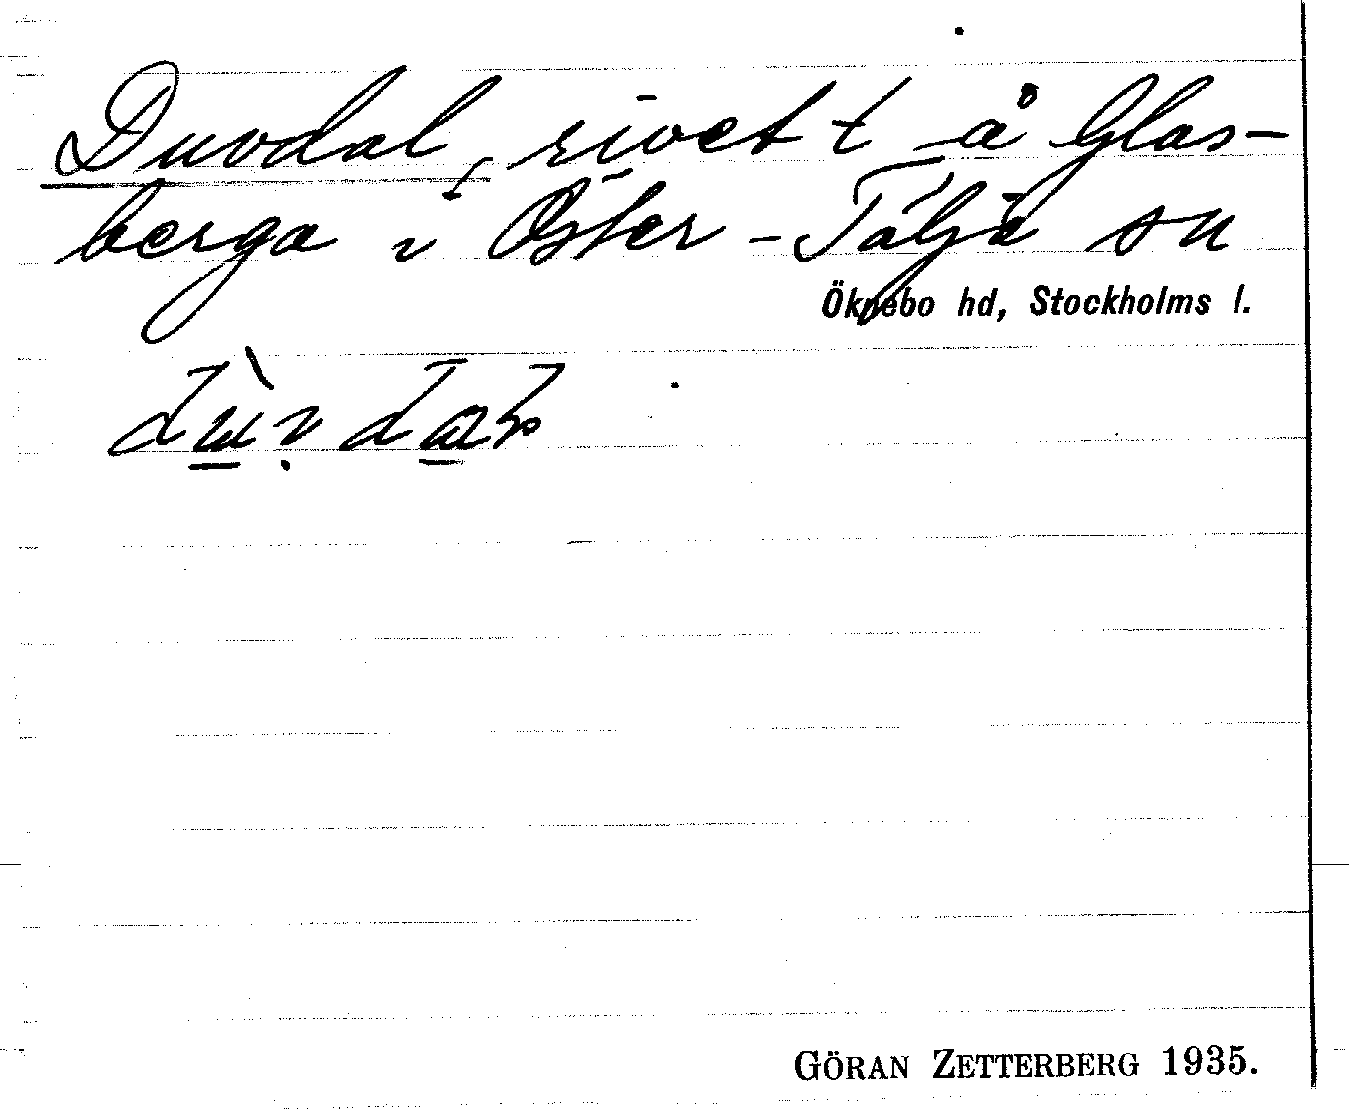 Duvdal, rivet t å Glas-
berga i Öster-Tälje sn
Öknebo hd, Stockholms l.
dùvdaḷ
GÖRAN ZETTERBERG 1935.